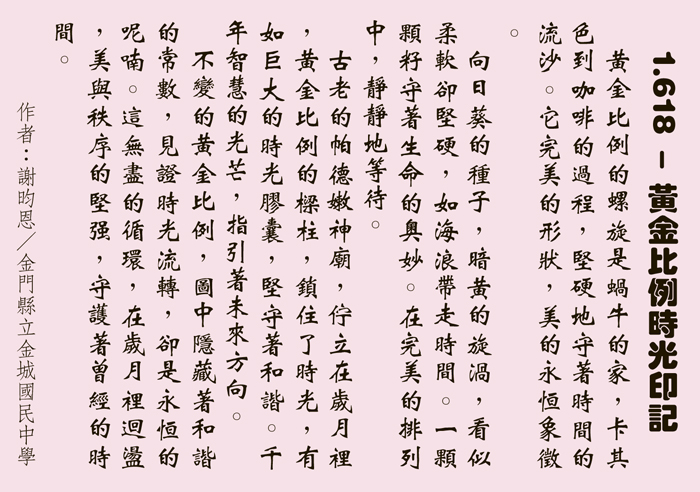 1.618 – 黃金比例時光印記
黃金比例的螺旋是蝸牛的家，卡其
色到咖啡的過程，堅硬地守著時間的
流沙。它完美的形狀，美的永恒象徵
。
向日葵的種子，暗黃的旋渦，看似
柔軟卻堅硬，如海浪帶走時間。一顆
顆籽守著生命的奧妙。在完美的排列
中，靜靜地等待。
古老的帕德嫩神廟，佇立在歲月裡
，黃金比例的樑柱，鎖住了時光，有
如巨大的時光膠囊，堅守著和諧。千
年智慧的光芒，指引著未來方向。
不變的黃金比例，圖中隱藏著和諧
的常數，見證時光流轉，卻是永恒的
呢喃。這無盡的循環，在歲月裡迴盪
，美與秩序的堅强，守護著曾經的時
間。
作者：謝昀恩／金門縣立金城國民中學